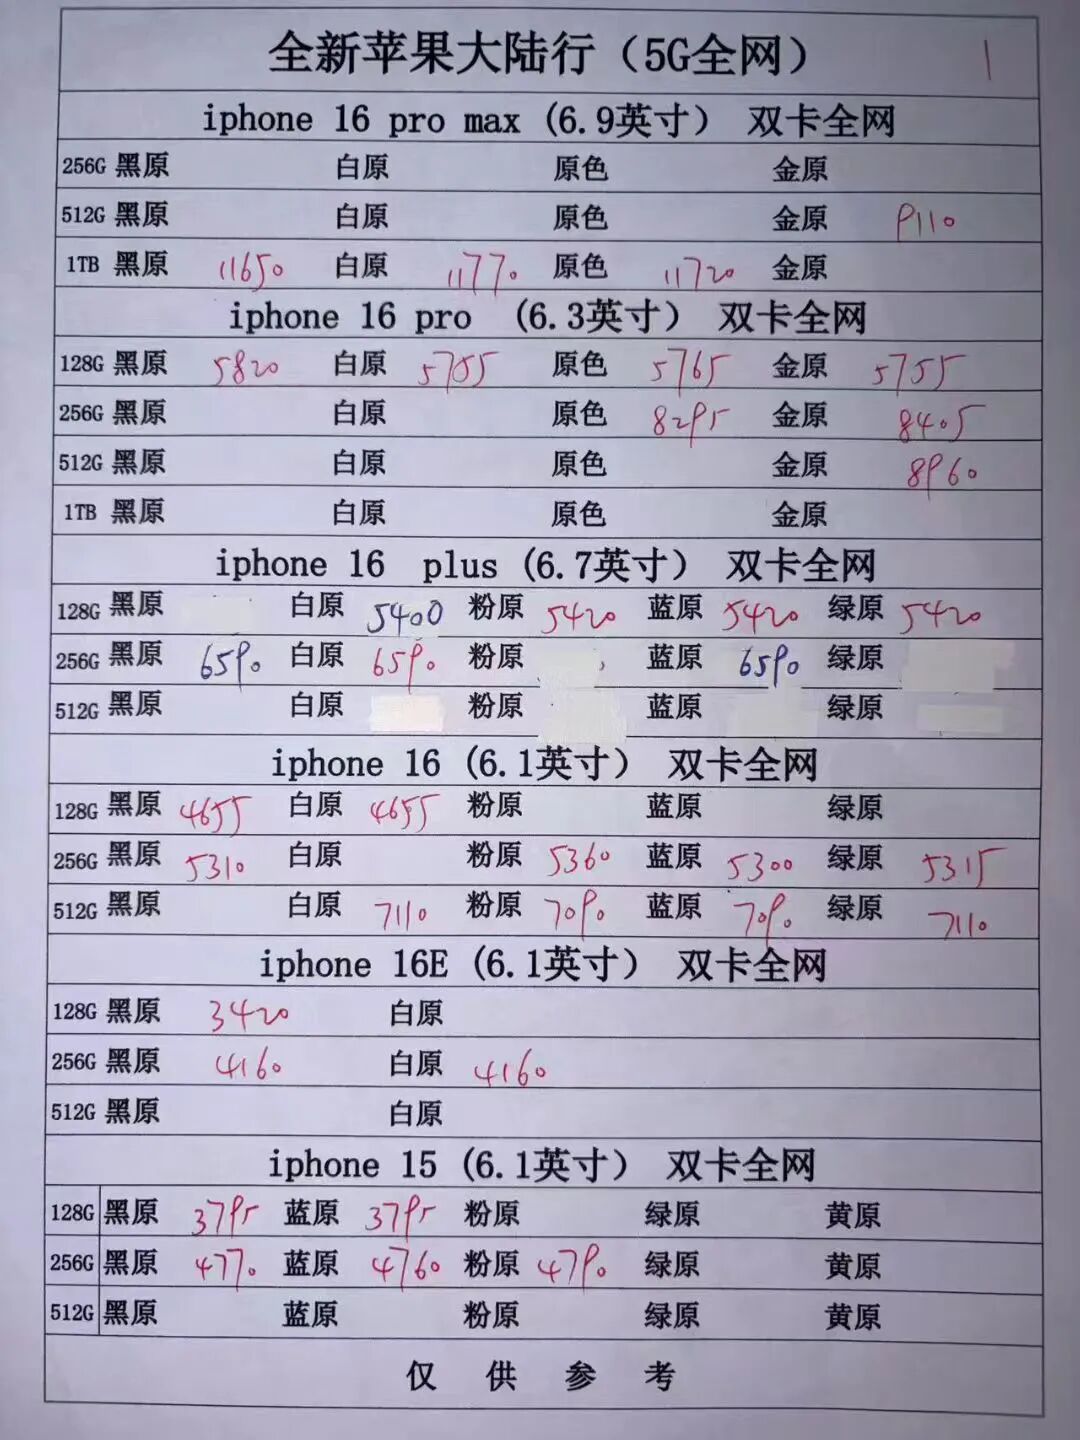 全新苹果大陆行（5G全网） 1
iphone 16 pro max (6.9英寸） 双卡全网
256G 黑原 白原 原色 金原
512G 黑原 白原 原色 金原 9110
1TB 黑原 11650 白原 11770 原色 11720 金原
iphone 16 pro (6.3英寸） 双卡全网
128G 黑原 5820 白原 5755 原色 5765 金原 5755
256G 黑原 白原 原色 8295 金原 8405
512G 黑原 白原 原色 金原 8960
1TB 黑原 白原 原色 金原
iphone 16 plus (6.7英寸） 双卡全网
128G 黑原 白原 5400 粉原 5420 蓝原 5420 绿原 5420
256G 黑原 6590 白原 6590 粉原 蓝原 6590 绿原
512G 黑原 白原 粉原 蓝原 绿原
iphone 16 (6.1英寸） 双卡全网
128G 黑原 4655 白原 4655 粉原 蓝原 绿原
256G 黑原 5310 白原 粉原 5360 蓝原 5300 绿原 5315
512G 黑原 白原 7110 粉原 7090 蓝原 7090 绿原 7110
iphone 16E (6.1英寸） 双卡全网
128G 黑原 3420 白原
256G 黑原 4160 白原 4160
512G 黑原 白原
iphone 15 (6.1英寸） 双卡全网
128G 黑原 3795 蓝原 3795 粉原 绿原 黄原
256G 黑原 4770 蓝原 4760 粉原 4790 绿原 黄原
512G 黑原 蓝原 粉原 绿原 黄原
仅 供 参 考